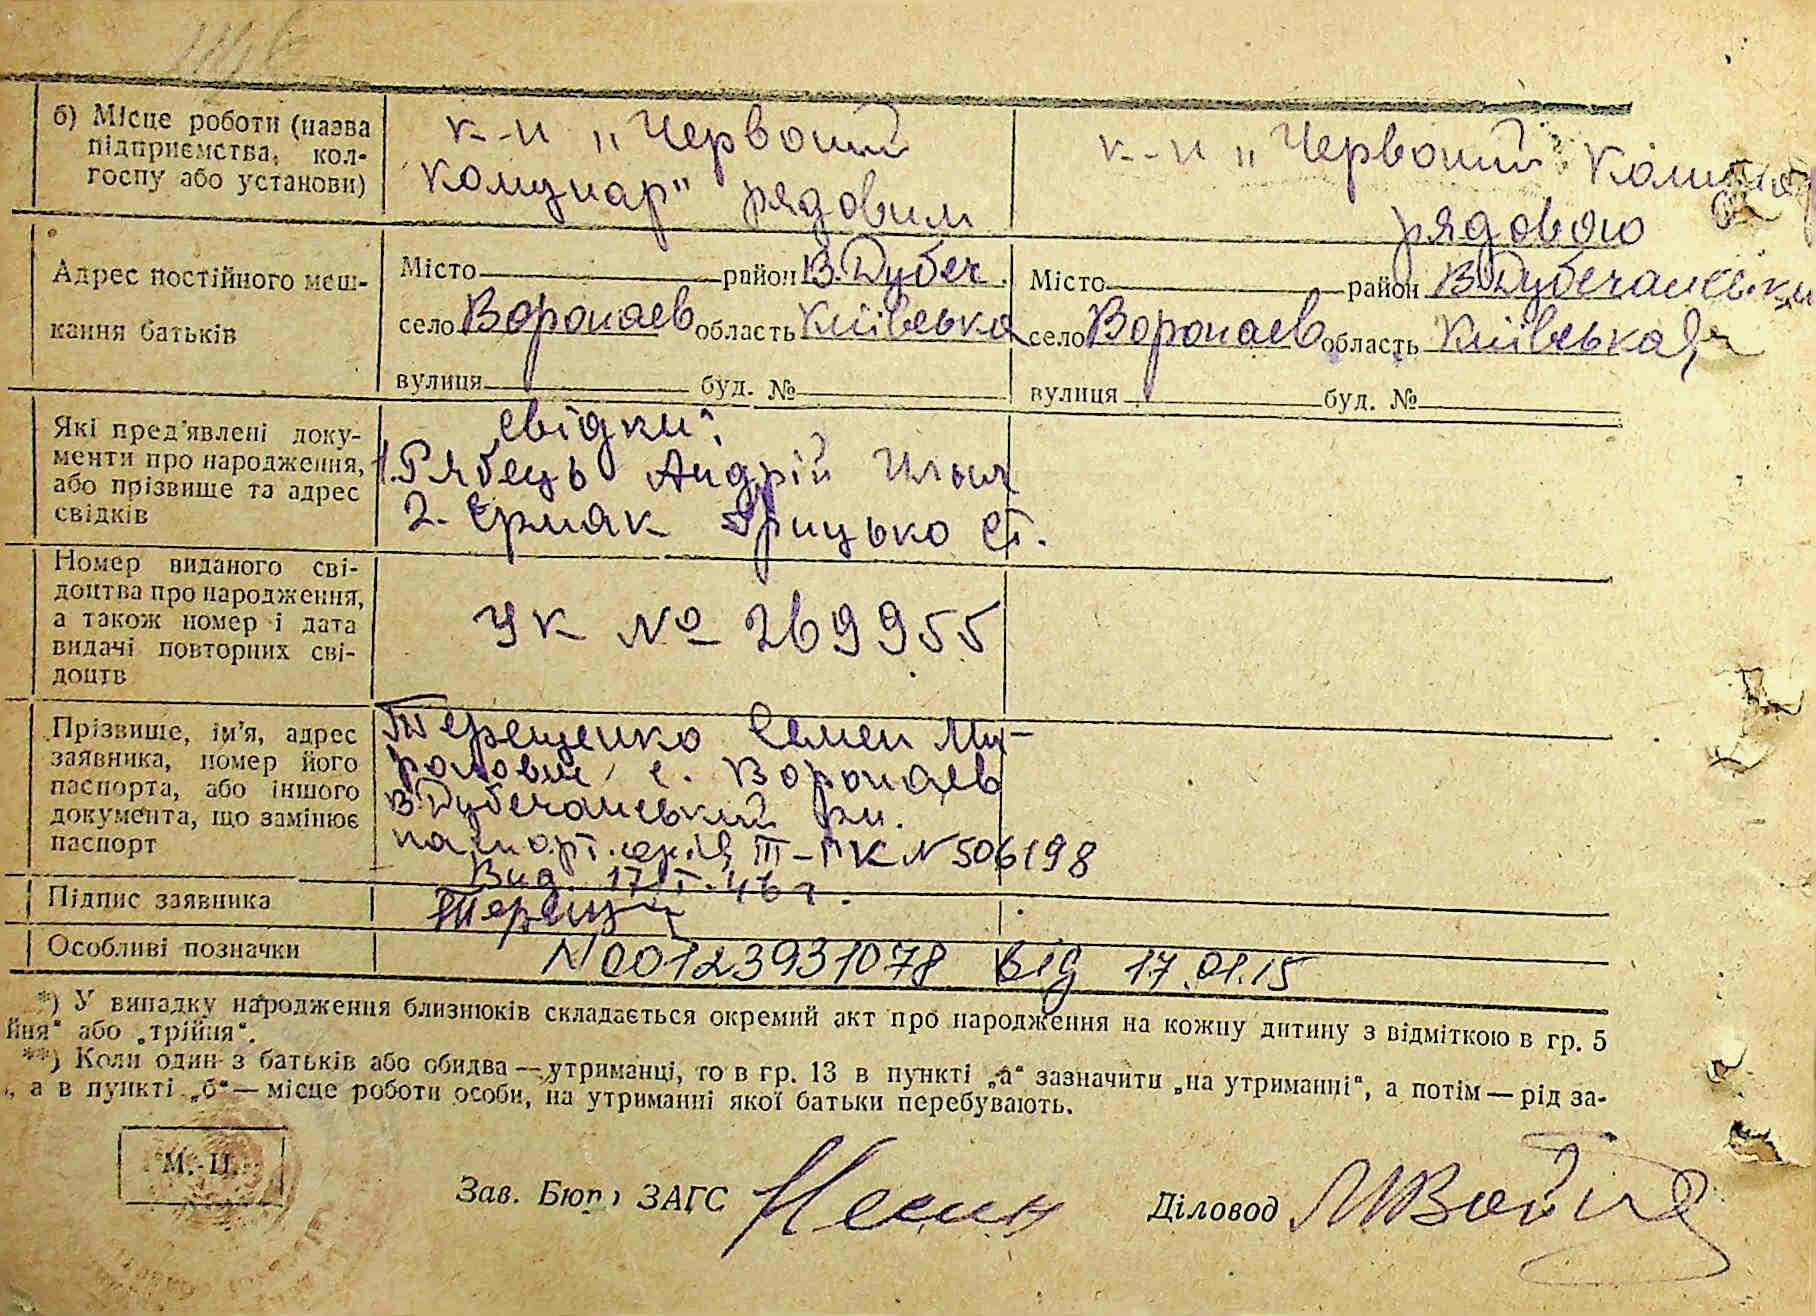 б) Місце роботи (назва
підприємства, кол-
госпу або установи)
к-п „Червоний
комунар" рядовим
к-п „Червоний Комунар
рядовою
Адрес постійного меш-
кання батьків
Місто район В. Дубеч.
село Воропаев область Київська
вулиця буд. №
Місто район В Дубечанський
село Воропаев область Київська
вулиця буд. №
Які пред'явлені доку-
менти про народження,
або прізвище та адрес
свідків
свідки:
1. Рябець Андрій Ильич
2. Єрмак Грицько Ст.
Номер виданого сві-
доцтва про народження,
а також номер і дата
видачі повторних сві-
доцтв
УК № 269955
Прізвище, ім'я, адрес
заявника, номер його
паспорта, або іншого
документа, що замінює
паспорт
Терещенко Семен
с. Воропаев
В. Дубечанський рн.
паспорт. серія III-ПК N 506198
Вид. 17 I. 46 г.
Підпис заявника
Терещ
Особливі позначки
N00123931078 від 17.01.15
*) У випадку народження близнюків складається окремий акт про народження на кожну дитину з відміткою в гр. 5
йня" або „трійня".
**) Коли один з батьків або обидва — утриманці, то в гр. 13 в пункті „а" зазначити „на утриманні", а потім — рід за-
, а в пункті „б" — місце роботи особи, на утриманні якої батьки перебувають.
М. П.
Зав. Бюро ЗАГС
Діловод